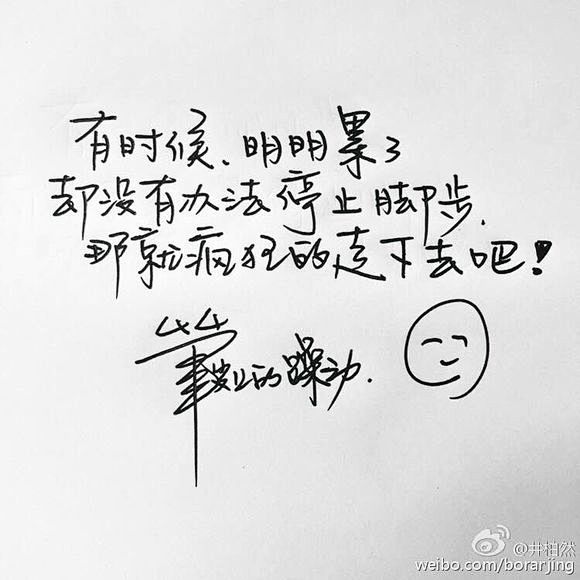 有时候、明明累了
却没有办法停止脚步.
那就疯狂的走下去吧!
笔端上的躁动.
@井柏然
weibo.com/borarjing